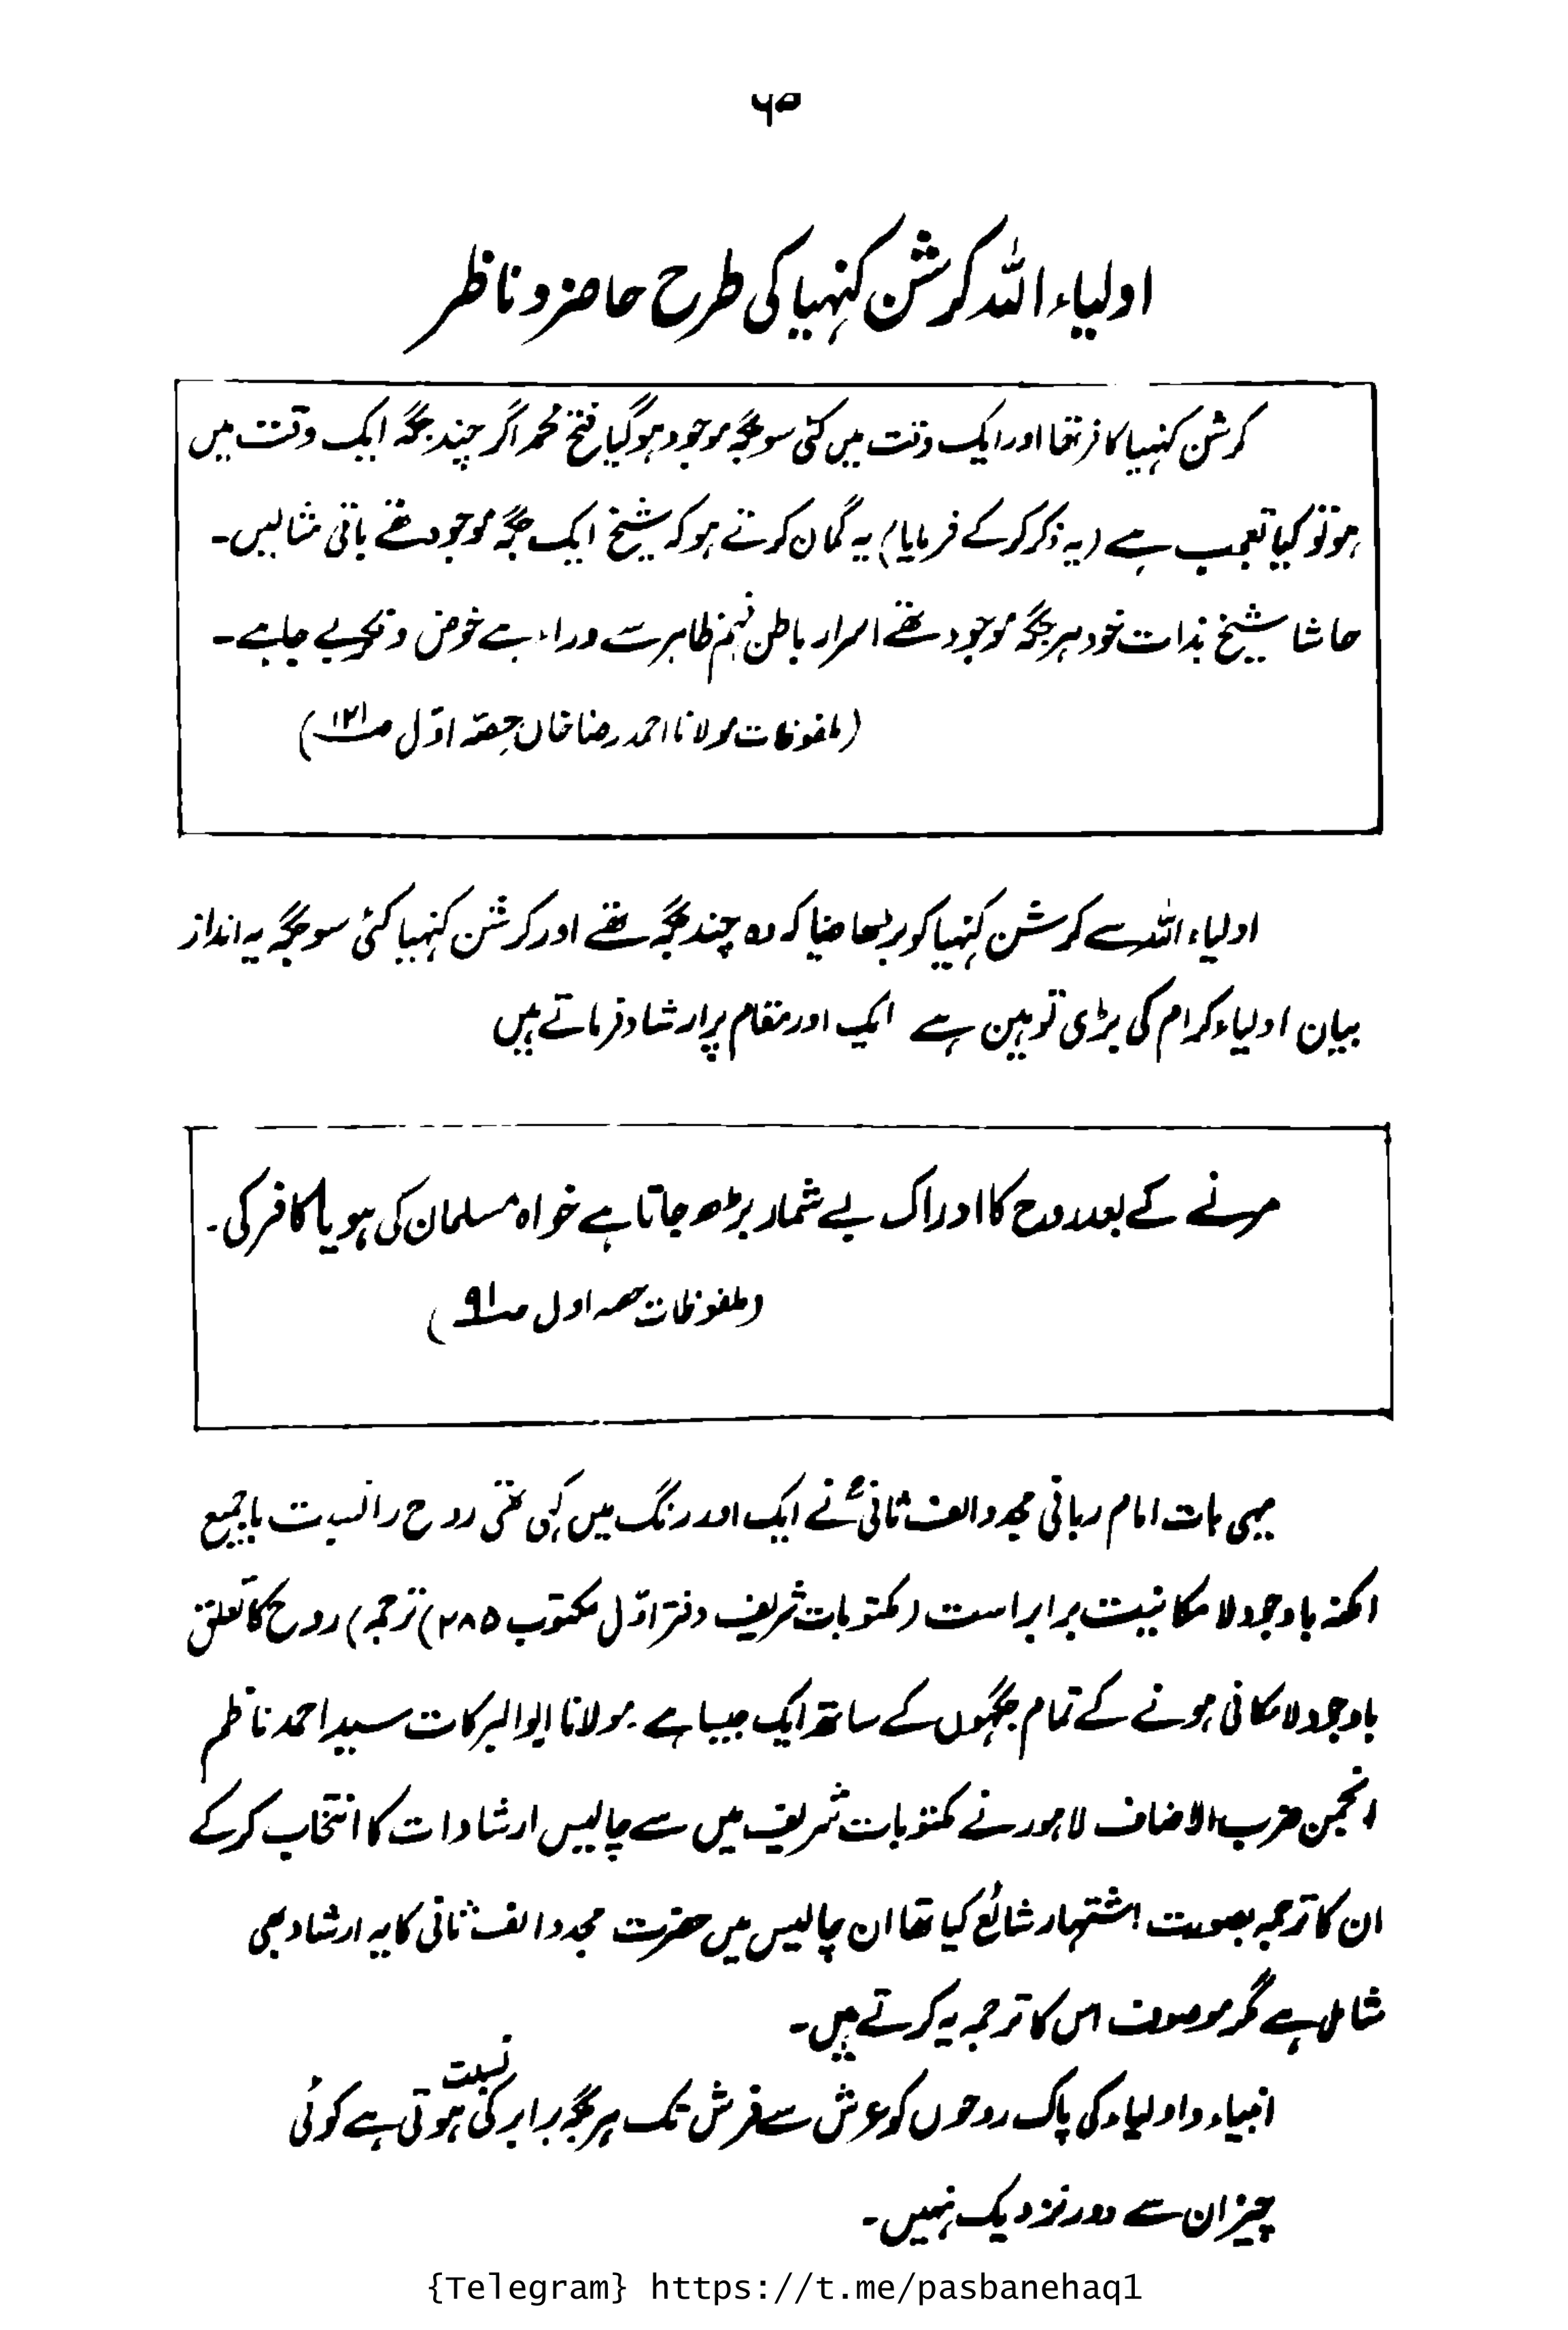 ۶۵
اولیاء اللہ کرشن کنہیا کی طرح حاضر و ناظر
کرشن کنہیا کافر تھا اور ایک وقت میں کئی سو جگہ موجود ہو گیا فتح محمد اگر چند جگہ ایک وقت میں
ہو تو کیا تعجب ہے (یہ ذکر کرکے فرمایا) یہ گمان کرتے ہو کہ شیخ ایک جگہ موجود تھے باقی مثالیں۔
حاشا شیخ بذات خود ہر جگہ موجود تھے اسرار باطن فہم ظاہر سے وراء ہے خوض و فکر بے جا ہے۔
(ملفوظات مولانا احمد رضا خاں حصہ اوّل ص۱۲۱)
اولیاء اللہ سے کرشن کنہیا کو بڑھا دینا کہ وہ چند جگہ تھے اور کرشن کنہیا کئی سو جگہ یہ انداز
بیان اولیاء کرام کی بڑی توہین ہے ایک اور مقام پر ارشاد فرماتے ہیں
مرنے کے بعد روح کا ادراک بے شمار بڑھ جاتا ہے خواہ مسلمان کی ہو یا کافر کی۔
(ملفوظات حصہ اول ص۹۱)
یہی بات امام ربانی مجدد الف ثانیؒ نے ایک اور رنگ میں کہی تھی روح را نسبت باجمیع
امکنہ باوجود لامکانیت برابر است (مکتوبات شریف دفتر اوّل مکتوب ۲۸۵) (ترجمہ) روح کا تعلق
باوجود لامکانی ہونے کے تمام جگہوں کے ساتھ ایک جیسا ہے۔ مولانا ابوالبرکات سید احمد ناظم
انجمن حزب الاحناف لاہور نے مکتوبات شریف میں سے چالیس ارشادات کا انتخاب کرکے
ان کا ترجمہ بصورت اشتہار شائع کیا تھا ان چالیس میں حضرت مجدد الف ثانی کا یہ ارشاد بھی
شامل ہے مگر موصوف اس کا ترجمہ یہ کرتے ہیں۔
انبیاء و اولیاء کی پاک روحوں کو عرش سے فرش تک ہر جگہ برابر کی نسبت ہوتی ہے کوئی
چیز ان سے دور نزدیک نہیں۔
{Telegram} https://t.me/pasbanehaq1